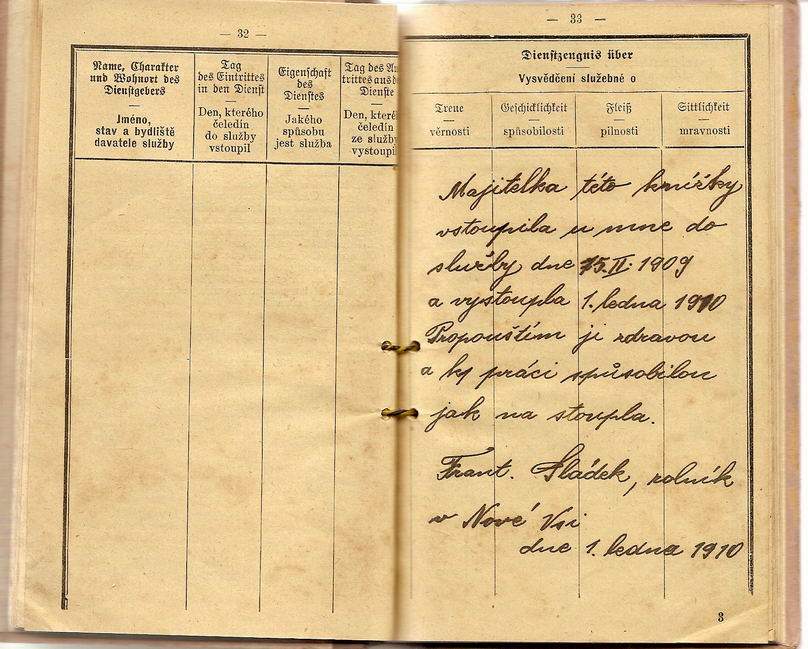 — 32 —
Name, Charakter
und Wohnort des
Dienstgebers
Jméno,
stav a bydliště
davatele služby
Tag
des Eintrittes
in den Dienst
Den, kterého
čeledín
do služby
vstoupil
Eigenschaft
des
Dienstes
Jakého
spůsobu
jest služba
Tag des Au
trittes aus d
Dienste
Den, které
čeledín
ze služb
vystoupi
— 33 —
Dienstzeugnis über
Vysvědčení služebné o
Treue
věrnosti
Geschicklichkeit
spůsobilosti
Fleiß
pilnosti
Sittlichkeit
mravnosti
Majitelka této knížky
vstoupila u mne do
služby dne 15.II. 1909
a vystoupla 1. ledna 1910
Propouštím ji zdravou
a ku práci spůsobilou
jak na stoupla.
Frant. Sládek, rolník
v Nové Vsi
dne 1. ledna 1910
3